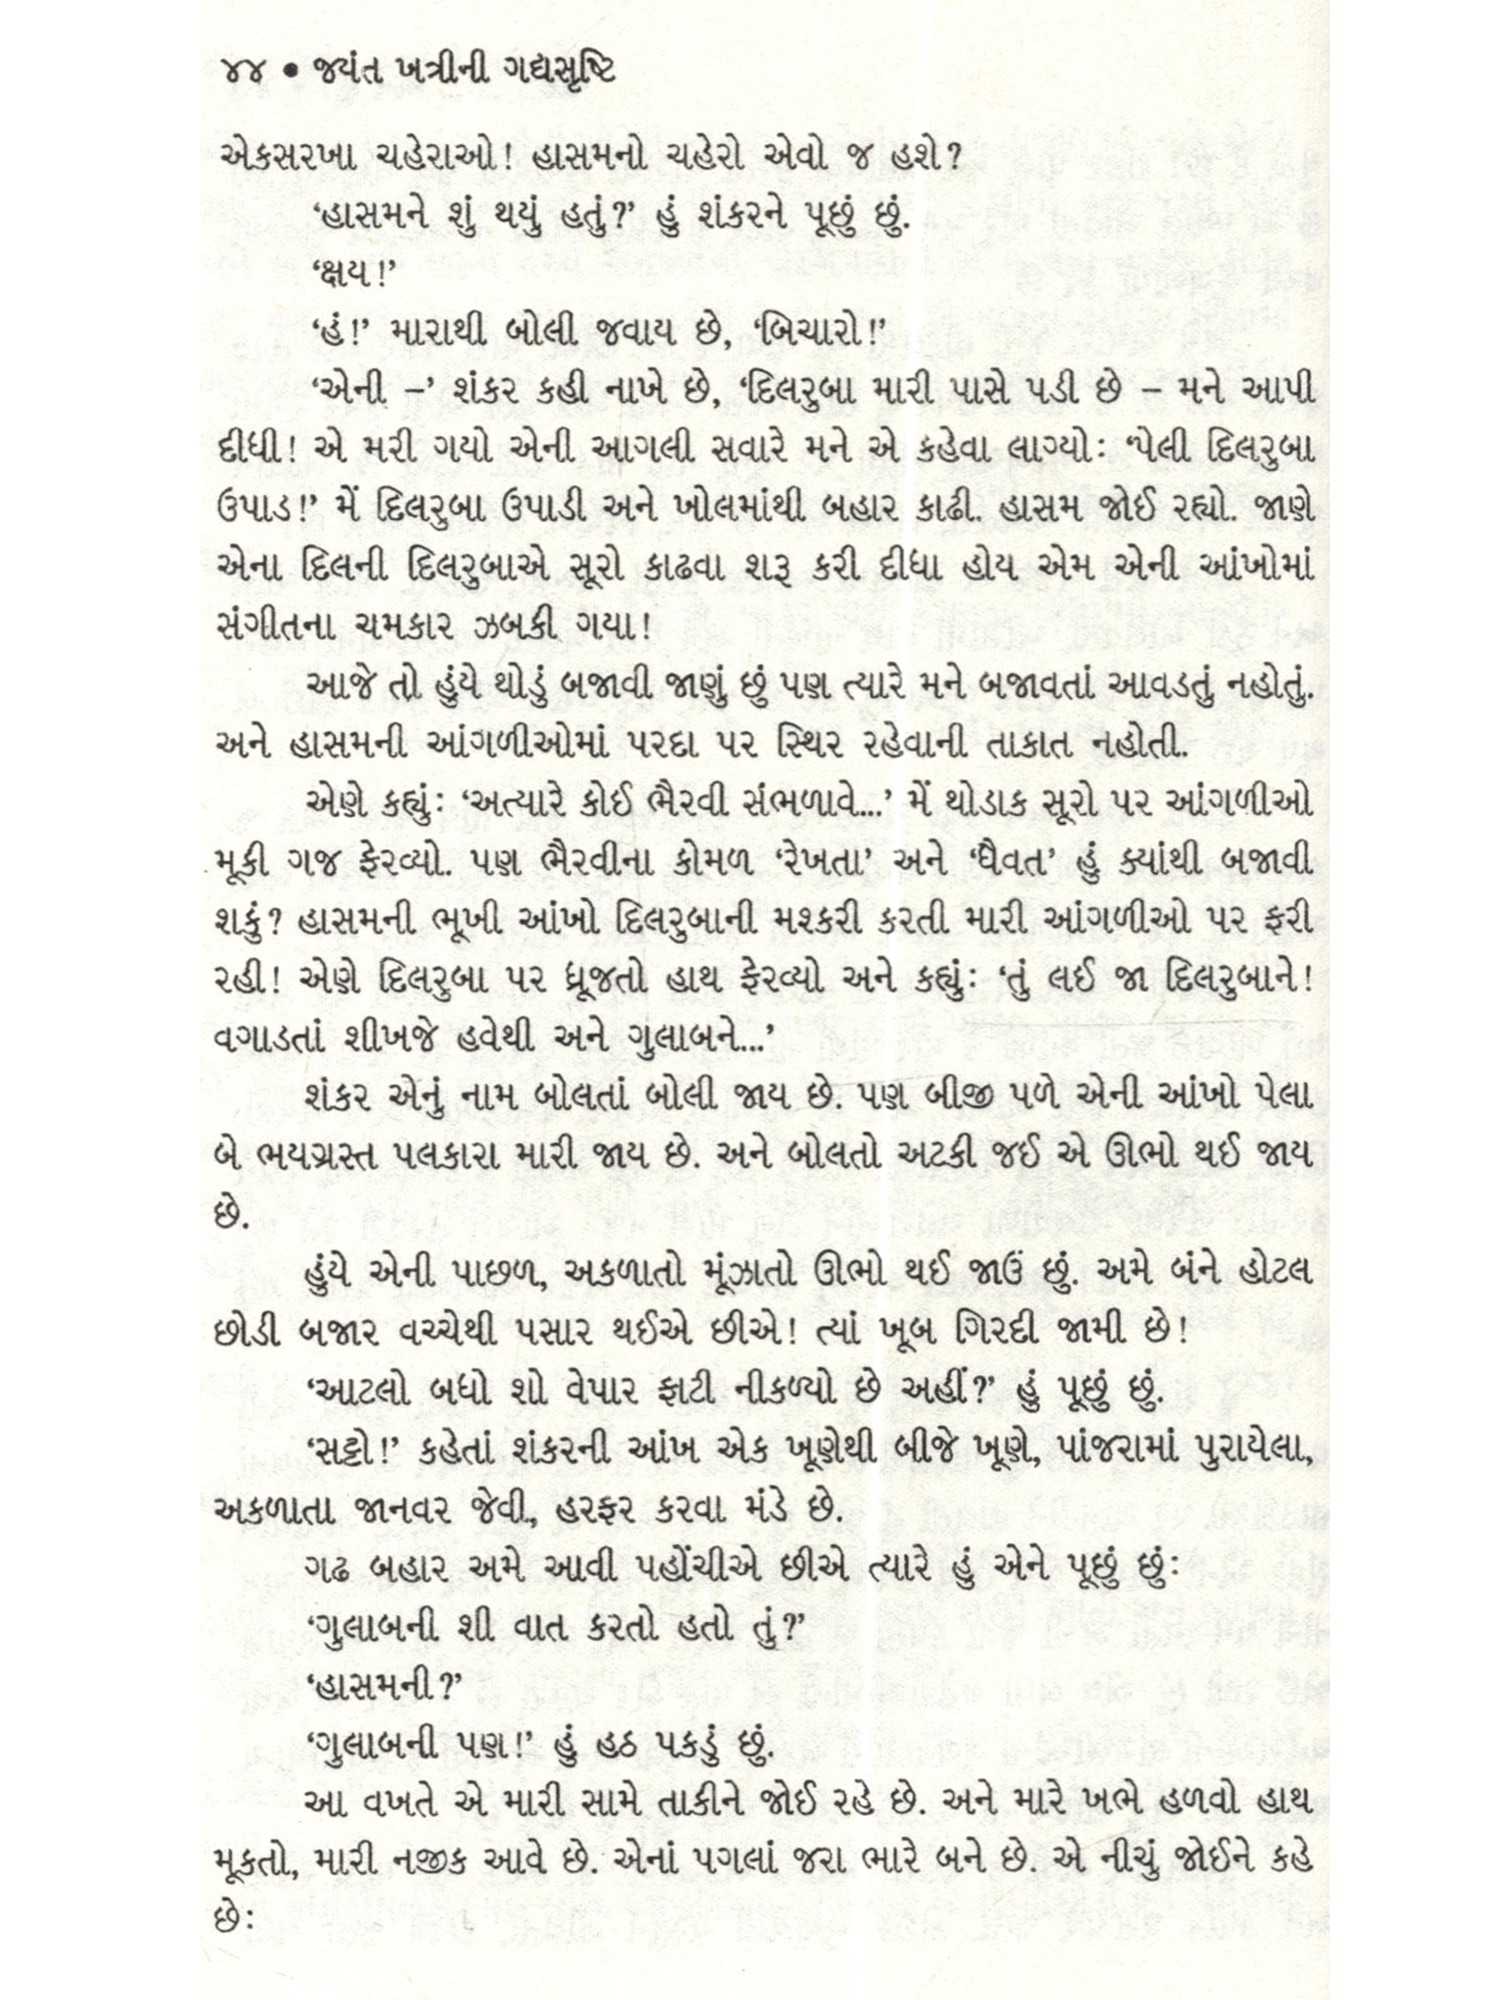 ૪૪ • જયંત ખત્રીની ગદ્યસૃષ્ટિ
એકસરખા ચહેરાઓ! હાસમનો ચહેરો એવો જ હશે?
‘હાસમને શું થયું હતું?’ હું શંકરને પૂછું છું.
‘ક્ષય!’
‘હં!’ મારાથી બોલી જવાય છે, ‘બિચારો!’
‘એની –’ શંકર કહી નાખે છે, ‘દિલરુબા મારી પાસે પડી છે – મને આપી
દીધી! એ મરી ગયો એની આગલી સવારે મને એ કહેવા લાગ્યોઃ ‘પેલી દિલરુબા
ઉપાડ!’ મેં દિલરુબા ઉપાડી અને ખોલમાંથી બહાર કાઢી. હાસમ જોઈ રહ્યો. જાણે
એના દિલની દિલરુબાએ સૂરો કાઢવા શરૂ કરી દીધા હોય એમ એની આંખોમાં
સંગીતના ચમકાર ઝબકી ગયા!
આજે તો હુંયે થોડું બજાવી જાણું છું પણ ત્યારે મને બજાવતાં આવડતું નહોતું.
અને હાસમની આંગળીઓમાં પરદા પર સ્થિર રહેવાની તાકાત નહોતી.
એણે કહ્યુંઃ ‘અત્યારે કોઈ ભૈરવી સંભળાવે...’ મેં થોડાક સૂરો પર આંગળીઓ
મૂકી ગજ ફેરવ્યો. પણ ભૈરવીના કોમળ ‘રેખતા’ અને ‘ધૈવત’ હું ક્યાંથી બજાવી
શકું? હાસમની ભૂખી આંખો દિલરુબાની મશ્કરી કરતી મારી આંગળીઓ પર ફરી
રહી! એણે દિલરુબા પર ધ્રૂજતો હાથ ફેરવ્યો અને કહ્યુંઃ ‘તું લઈ જા દિલરુબાને!
વગાડતાં શીખજે હવેથી અને ગુલાબને...’
શંકર એનું નામ બોલતાં બોલી જાય છે. પણ બીજી પળે એની આંખો પેલા
બે ભયગ્રસ્ત પલકારા મારી જાય છે. અને બોલતો અટકી જઈ એ ઊભો થઈ જાય
છે.
હુંયે એની પાછળ, અકળાતો મૂંઝાતો ઊભો થઈ જાઉં છું. અમે બંને હોટલ
છોડી બજાર વચ્ચેથી પસાર થઈએ છીએ! ત્યાં ખૂબ ગિરદી જામી છે!
‘આટલો બધો શો વેપાર ફાટી નીકળ્યો છે અહીં?’ હું પૂછું છું.
‘સટ્ટો!’ કહેતાં શંકરની આંખ એક ખૂણેથી બીજે ખૂણે, પાંજરામાં પુરાયેલા,
અકળાતા જાનવર જેવી, હરફર કરવા મંડે છે.
ગઢ બહાર અમે આવી પહોંચીએ છીએ ત્યારે હું એને પૂછું છુંઃ
‘ગુલાબની શી વાત કરતો હતો તું?’
‘હાસમની?’
‘ગુલાબની પણ!’ હું હઠ પકડું છું.
આ વખતે એ મારી સામે તાકીને જોઈ રહે છે. અને મારે ખભે હળવો હાથ
મૂકતો, મારી નજીક આવે છે. એનાં પગલાં જરા ભારે બને છે. એ નીચું જોઈને કહે
છેઃ